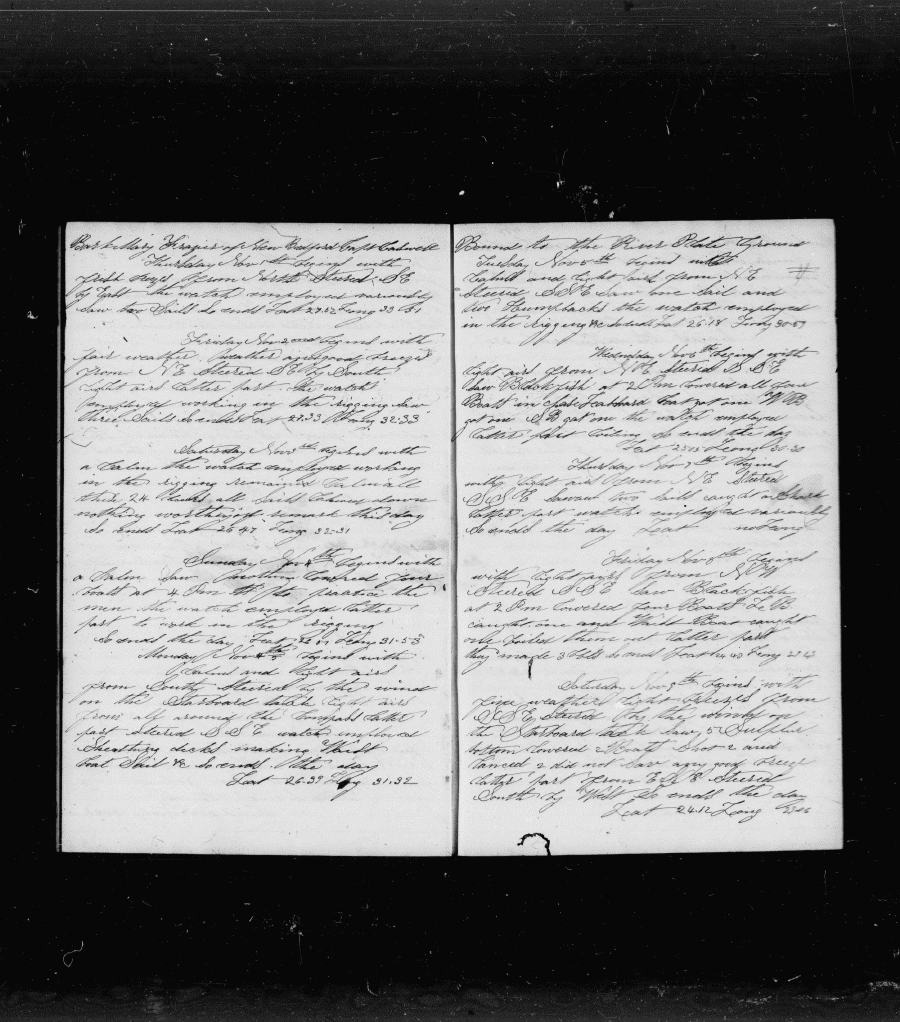 Bark Mary Frazier of New Bedford Capt Cadwell
Thursday Nov 1st begins with
fresh from North Steered SE
by East the watch employed variously
Saw two Sails So ends Lat 27.52 Long 33
Friday Nov 2nd begins with
fair weather a good breeze
from NE Steered SE by South
light airs latter part the watch
employed working in the rigging Saw
three Sails So ends Lat 27.33 Long 32.33
Saturday Nov begins with
a Calm the watch employed working
in the rigging remained Calm all
these 24 hours all Sails down
nothing worthy of remark this day
So ends Lat 26 47 Long 32-31
Sunday Nov 4th begins with
a Calm Saw lowered four
boats at 4 Pm to practice the
men the watch employed latter
part to work in the rigging
So ends the day Lat Long 31-53
Monday Nov begins with
Calms and light airs
from South Steered by the wind
on the Starboard tack light airs
from all around the Compass latter
part Steered S S E watch employed
Sheathing decks making Waist
boat Sail &c So ends the day
Lat 26-39 Long 31.32
Bound to the River Plate Ground
Tuesday Nov 5th begins with
Calm and light airs from N E
Steered SSE Saw one Sail and
two Humpbacks the watch employed
in the rigging &c So ends Lat 26-18 Long 30-57
Wednesday Nov 6th begins with
light airs from N E Steered S S E
Saw Blackfish at 2 Pm lowered all four
Boats in Starboard boat got one W B
got one S B got one the watch employed
latter part boiling So ends the day
Lat 25-05 Long 30-20
Thursday Nov 7th begins
with light airs from N E Steered
S S E two Sails caught a Shark
latter part watch employed variously
So ends the day Lat no Long
Friday Nov 8th begins
with light airs from N W
Steered S S E Saw Blackfish
at 2 Pm lowered four Boats L B
caught one and Waist Boat caught
one boiled them out latter part
they made 3 bbls So ends Lat 24 40 Long
Saturday Nov 9th begins with
fine weather light breezes from
S S E Steered by the wind on
the Starboard tack Saw 5 Sulphur
bottom lowered 2 Boats Shot 2 and
lanced 2 did not Save any good breeze
latter part from E S E Steered
South by West So ends the day
Lat 24.12 Long